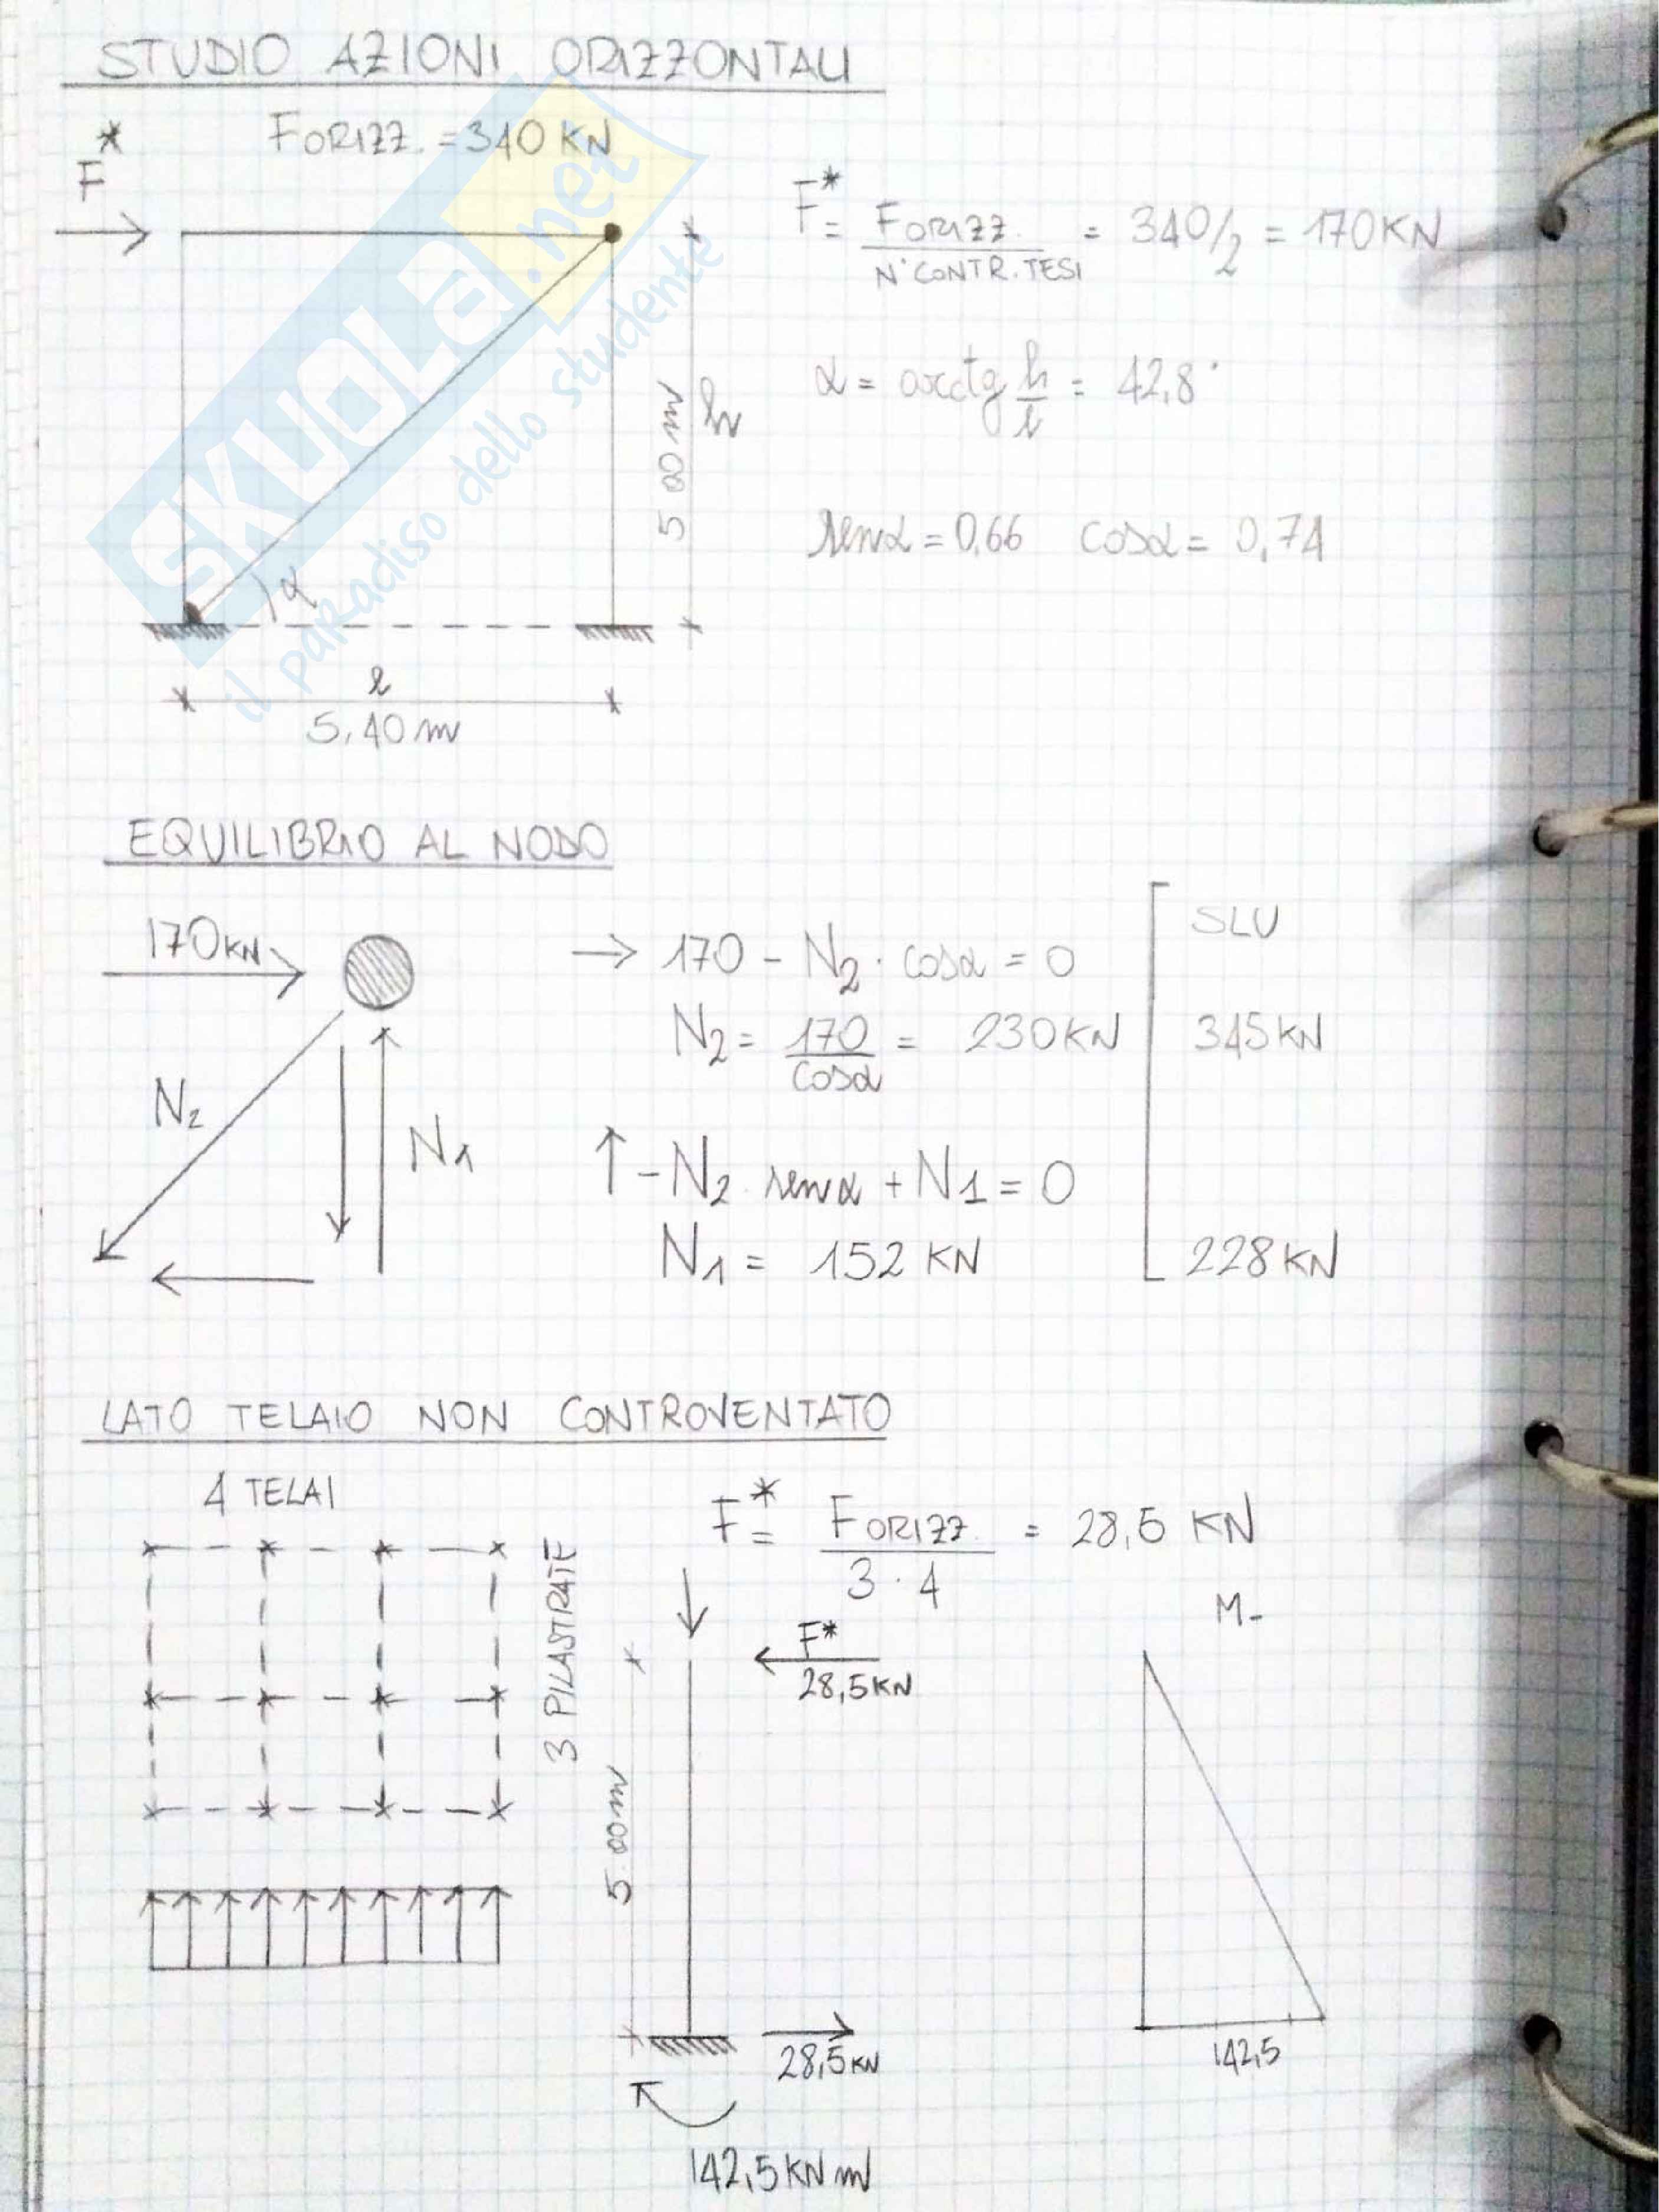 STUDIO AZIONI ORIZZONTALI
F* FORIZZ. = 340 KN
F* = FORIZZ. / N° CONTR. TESI = 340/2 = 170 KN
α = arctg h/l = 42,8°
5.00 m h
senα = 0,66 cosα = 0,74
α
l
5,40 m
SKUOLA.net
il paradiso dello studente
EQUILIBRIO AL NODO
170 KN
→ 170 - N2 · cosα = 0
SLU
N2 = 170 / cosα = 230 KN
345 KN
N2
N1
↑ - N2 · senα + N1 = 0
N1 = 152 KN
228 KN
LATO TELAIO NON CONTROVENTATO
4 TELAI
3 PILASTRATE
F* = FORIZZ. / 3 · 4 = 28,5 KN
M-
F*
28,5 KN
5.00 m
28,5 KN
142,5
142,5 KN m